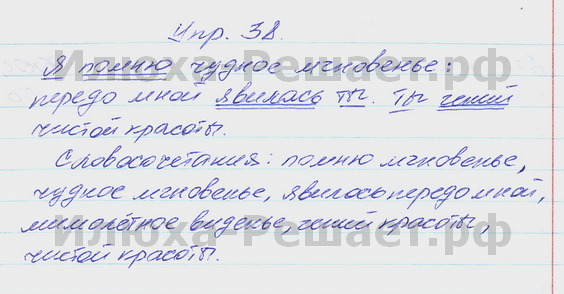 Упр. 38.
Я помню чудное мгновенье:
передо мной явилась ты. Ты гений
чистой красоты.
Словосочетания: помню мгновенье,
чудное мгновенье, явилось передо мной,
мимолётное виденье, гений красоты,
чистой красоты.
Илюха-Решает.рф
Илюха-Решает.рф